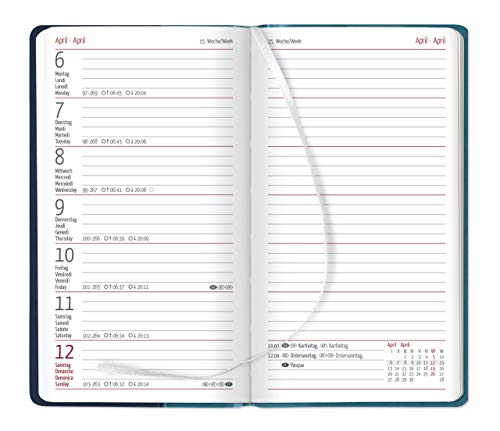 April - April
15. Woche/Week
6
Montag
Lundi
Lunedì
Monday
97-269 06:45 20:04
7
Dienstag
Mardi
Martedì
Tuesday
98-268 06:43 20:06
8
Mittwoch
Mercredi
Mercoledì
Wednesday
99-267 06:41 20:08
9
Donnerstag
Jeudi
Giovedì
Thursday
100-266 06:39 20:09
10
Freitag
Vendredi
Venerdì
Friday
101-265 06:37 20:11
11
Samstag
Samedi
Sabato
Saturday
102-264 06:34 20:13
12
Sonntag
Dimanche
Domenica
Sunday
103-263 06:32 20:14
15. Woche/Week
April - April
10.04. Karfreitag, Karfreitag
12.04. Ostersonntag, Ostersonntag,
Pasqua
April April
1 2 3 4 5
6 7 8 9 10 11 12
13 14 15 16 17 18 19
20 21 22 23 24 25 26
27 28 29 30